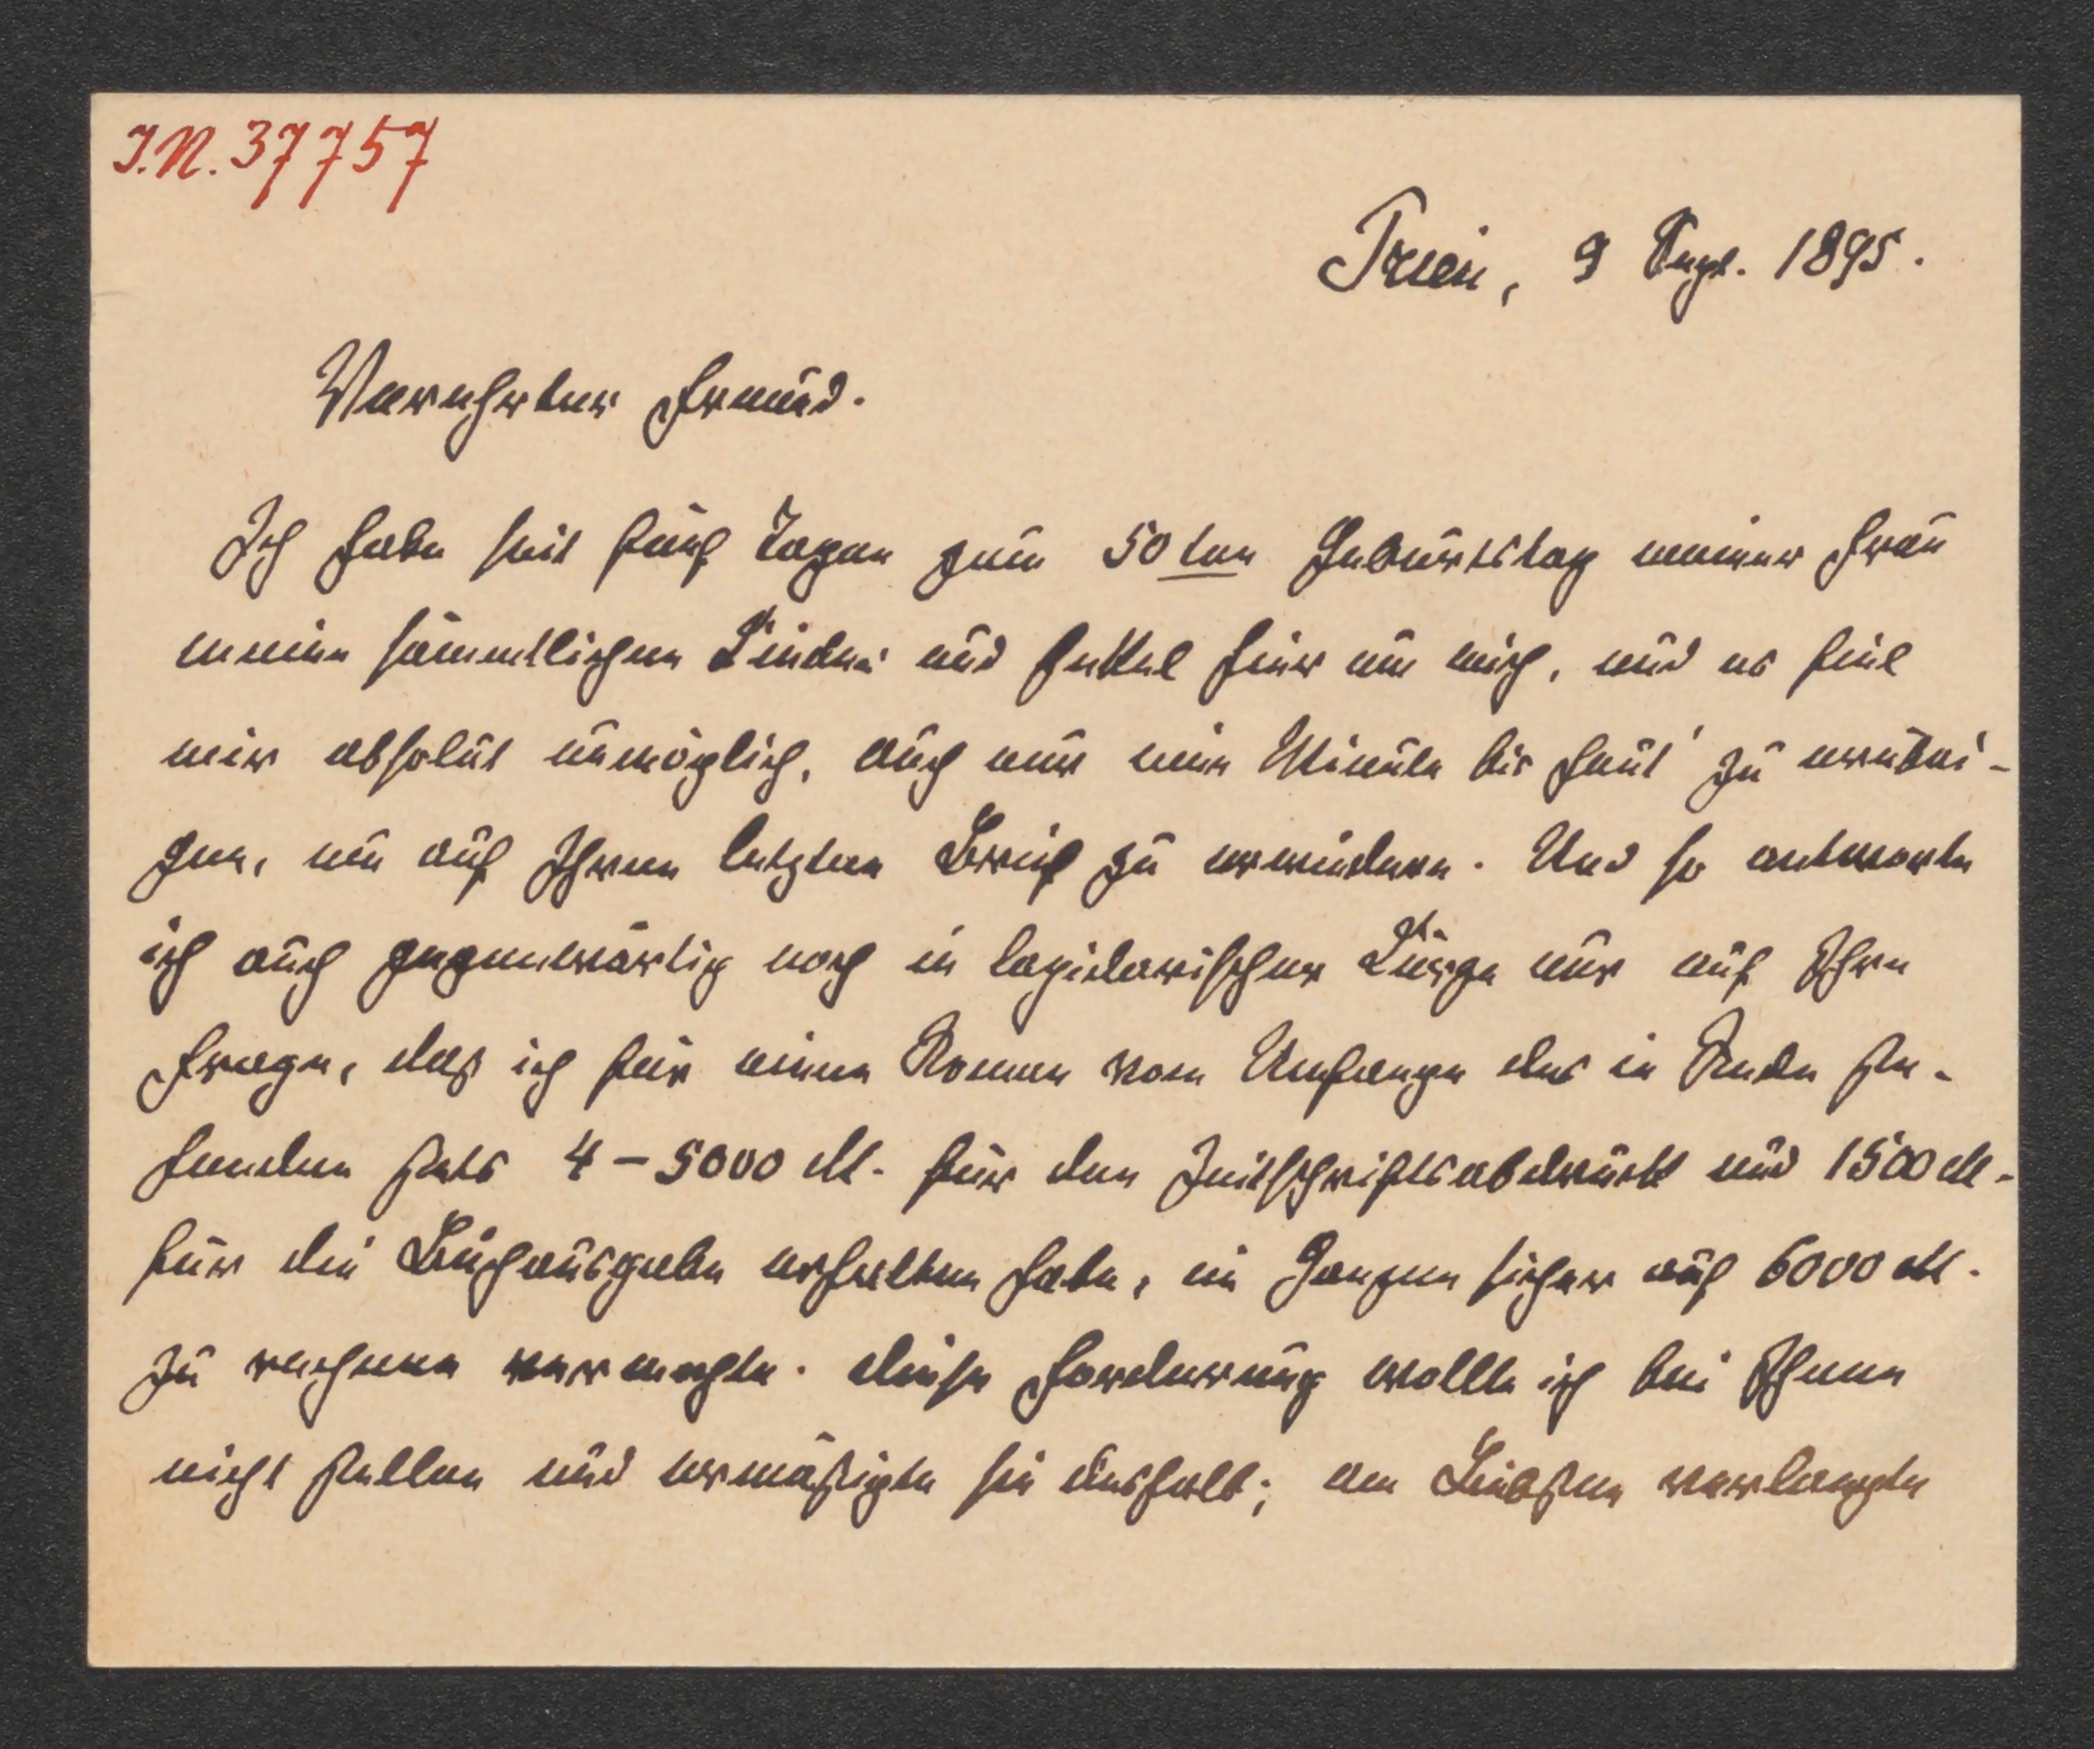 J.N. 37757
Prien, 9 Sept. 1895.
Verehrter Freund.
Ich habe seit fünf Tagen zum 50ten Geburtstag meiner Frau
meine sämmtlichen Kinder und Enkel hier um mich, und es fiel
mir absolut unmöglich, auch nur eine Minute bis heut' zu erübri-
gen, um auf Ihren letzten Brief zu erwiedern. Und so antworte
ich auch gegenwärtig noch in lapidarischer Kürze nur auf Ihre
Frage, daß ich für einen Roman vom Umfange des in Rede ste-
henden stets 4-5000 M. für den Zeitschriftsabdruck und 1500 M.
für die Buchausgabe erhalten habe, im Ganzen sicher auf 6000 M.
zu rechnen vermochte. Diese Forderung wollte ich bei Ihnen
nicht stellen und ermäßigte sie deshalb; am Liebsten verlangte